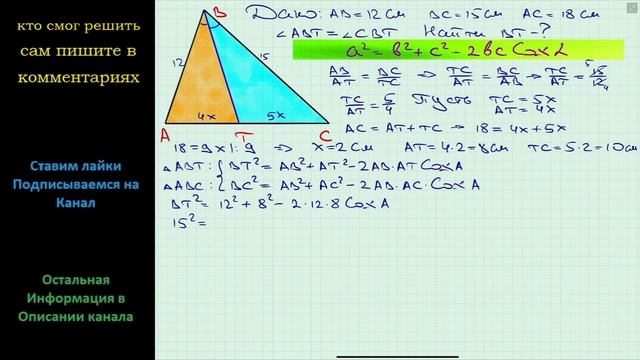 кто смог решить
сам пишите в
комментариях
Ставим лайки
Подписываемся на
Канал
Остальная
Информация в
Описании канала
Дано: AB = 12 см BC = 15 см AC = 18 см
∠ABT = ∠CBT Найти BT - ?
a² = b² + c² - 2bc Cos α
AB/AT = BC/TC ⇒ TC/AT = BC/AB ⇒ TC/AT = 15/12 5 4
TC/AT = 5/4 Пусть TC = 5x AT = 4x
AC = AT + TC ⇒ 18 = 4x + 5x
18 = 9x |: 9 ⇒ x = 2 см AT = 4·2 = 8 см TC = 5·2 = 10 см
△ABT: { BT² = AB² + AT² - 2AB·AT Cos A
△ABC: { BC² = AB² + AC² - 2AB·AC·Cos A
BT² = 12² + 8² - 2·12·8 Cos A
15² =
B
12
15
4x
5x
A
T
C